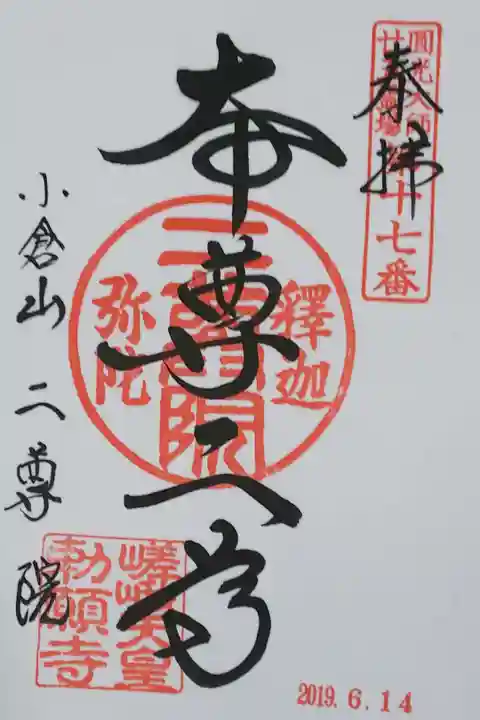 圓光大師
廿五霊場
第十七番
奉拝
本尊二尊
釋迦
二尊院
弥陀
小倉山 二尊院
嵯峨天皇
勅願寺
2019.6.14